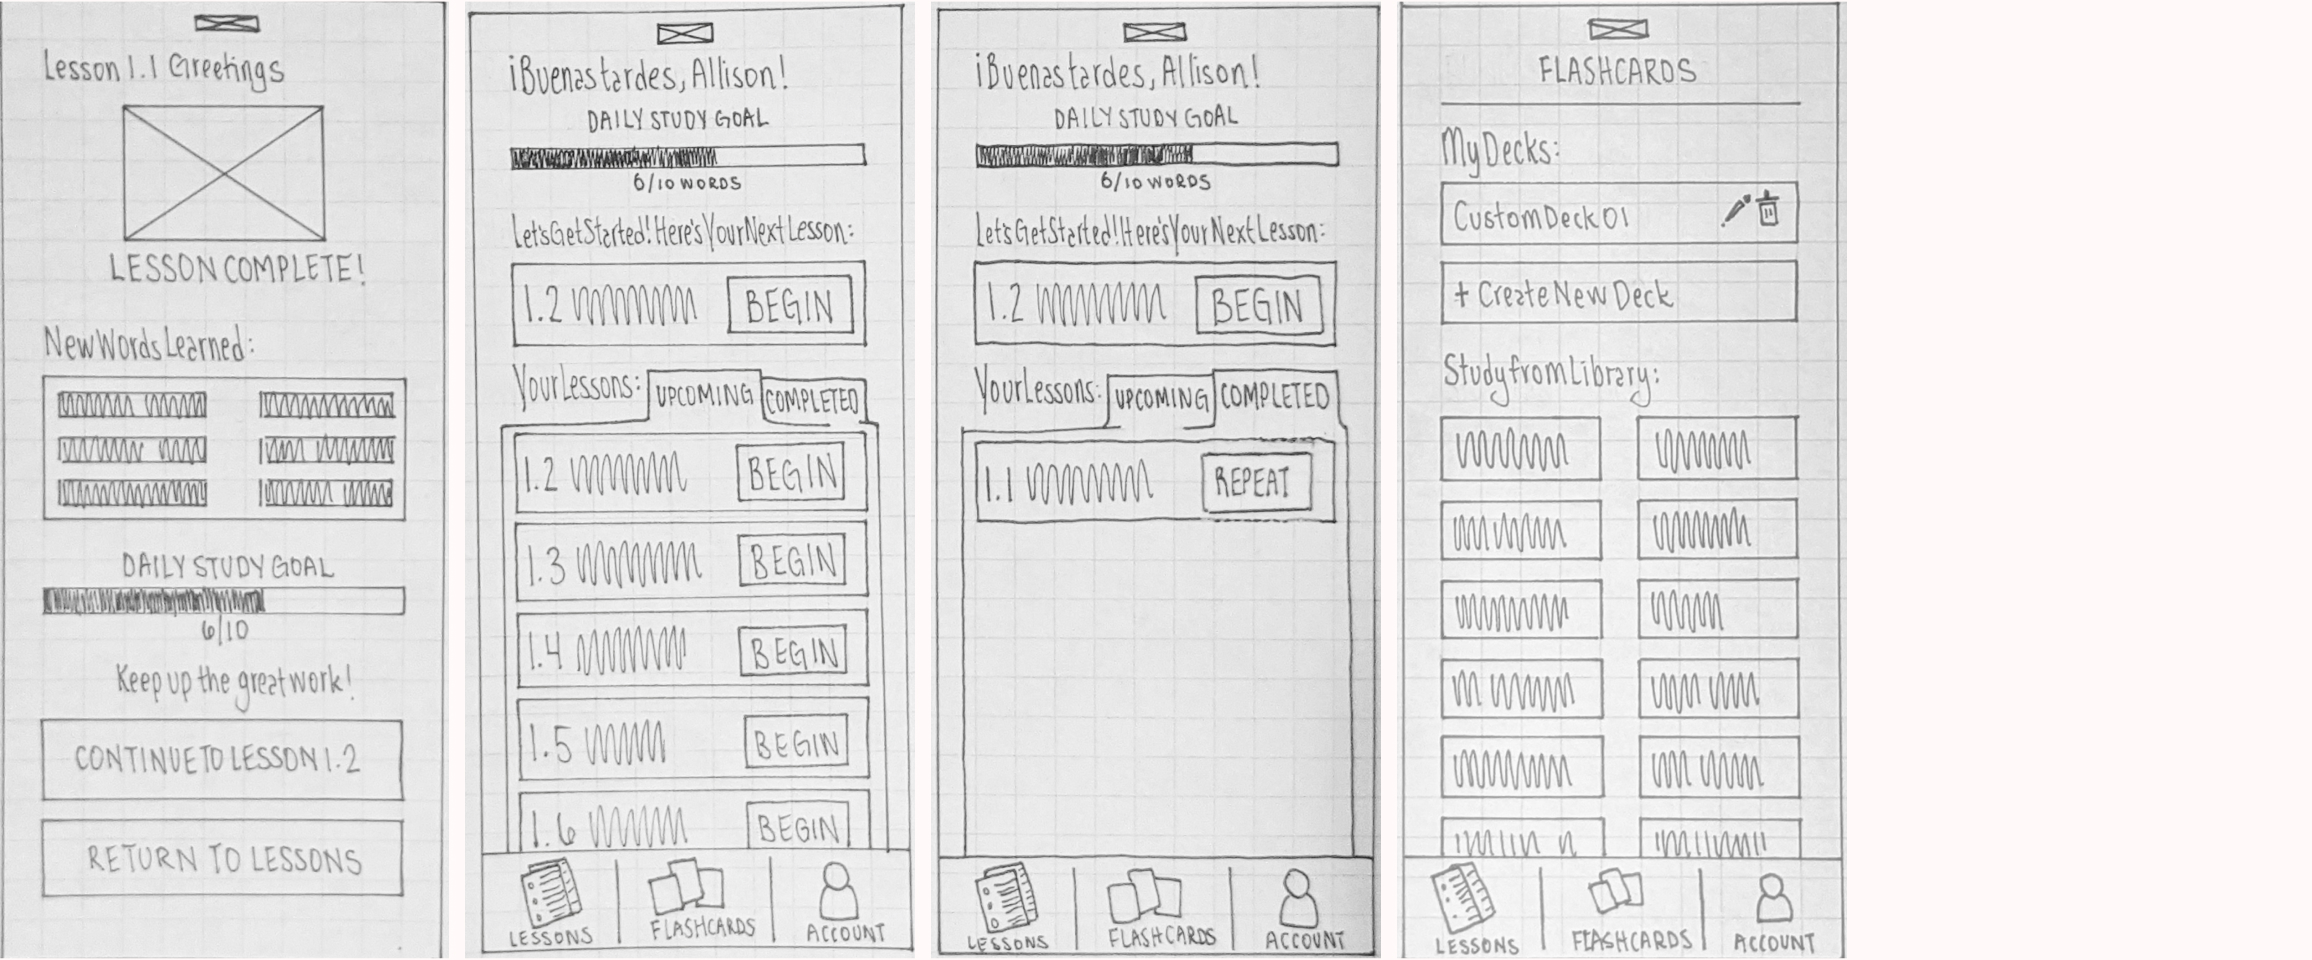 Lesson 1.1 Greetings
LESSON COMPLETE!
New Words Learned:
DAILY STUDY GOAL
6/10
Keep up the great work!
CONTINUE TO LESSON 1.2
RETURN TO LESSONS
¡Buenas tardes, Allison!
DAILY STUDY GOAL
6/10 WORDS
Let's Get Started! Here's Your Next Lesson:
1.2 BEGIN
Your Lessons: UPCOMING COMPLETED
1.2 BEGIN
1.3 BEGIN
1.4 BEGIN
1.5 BEGIN
1.6 BEGIN
LESSONS FLASHCARDS ACCOUNT
¡Buenas tardes, Allison!
DAILY STUDY GOAL
6/10 WORDS
Let's Get Started! Here's Your Next Lesson:
1.2 BEGIN
Your Lessons: UPCOMING COMPLETED
1.1 REPEAT
LESSONS FLASHCARDS ACCOUNT
FLASHCARDS
My Decks:
Custom Deck 01
+ Create New Deck
Study from Library:
LESSONS FLASHCARDS ACCOUNT